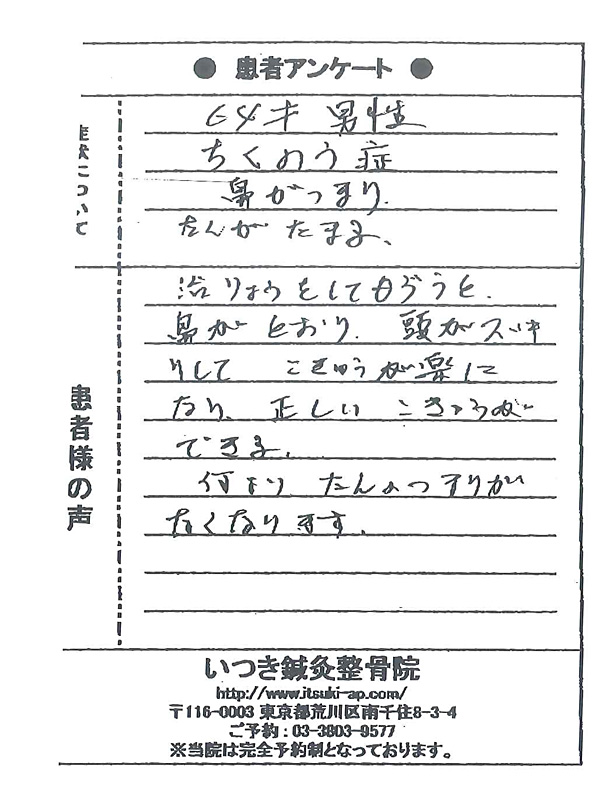 ● 患者アンケート ●
症状について
64才 男性
ちくのう症
鼻がつまり、
たんが たまる、
患者様の声
治りょうをしてもらうと、
鼻が とおり、 頭がスッキ
リして こきゅうが楽に
なり、正しい こきゅうが
できる、
何より たんのつまりが
なくなります。
いつき鍼灸整骨院
http://www.itsuki-ap.com/
〒116-0003 東京都荒川区南千住8-3-4
ご予約 : 03-3803-9577
※当院は完全予約制となっております。